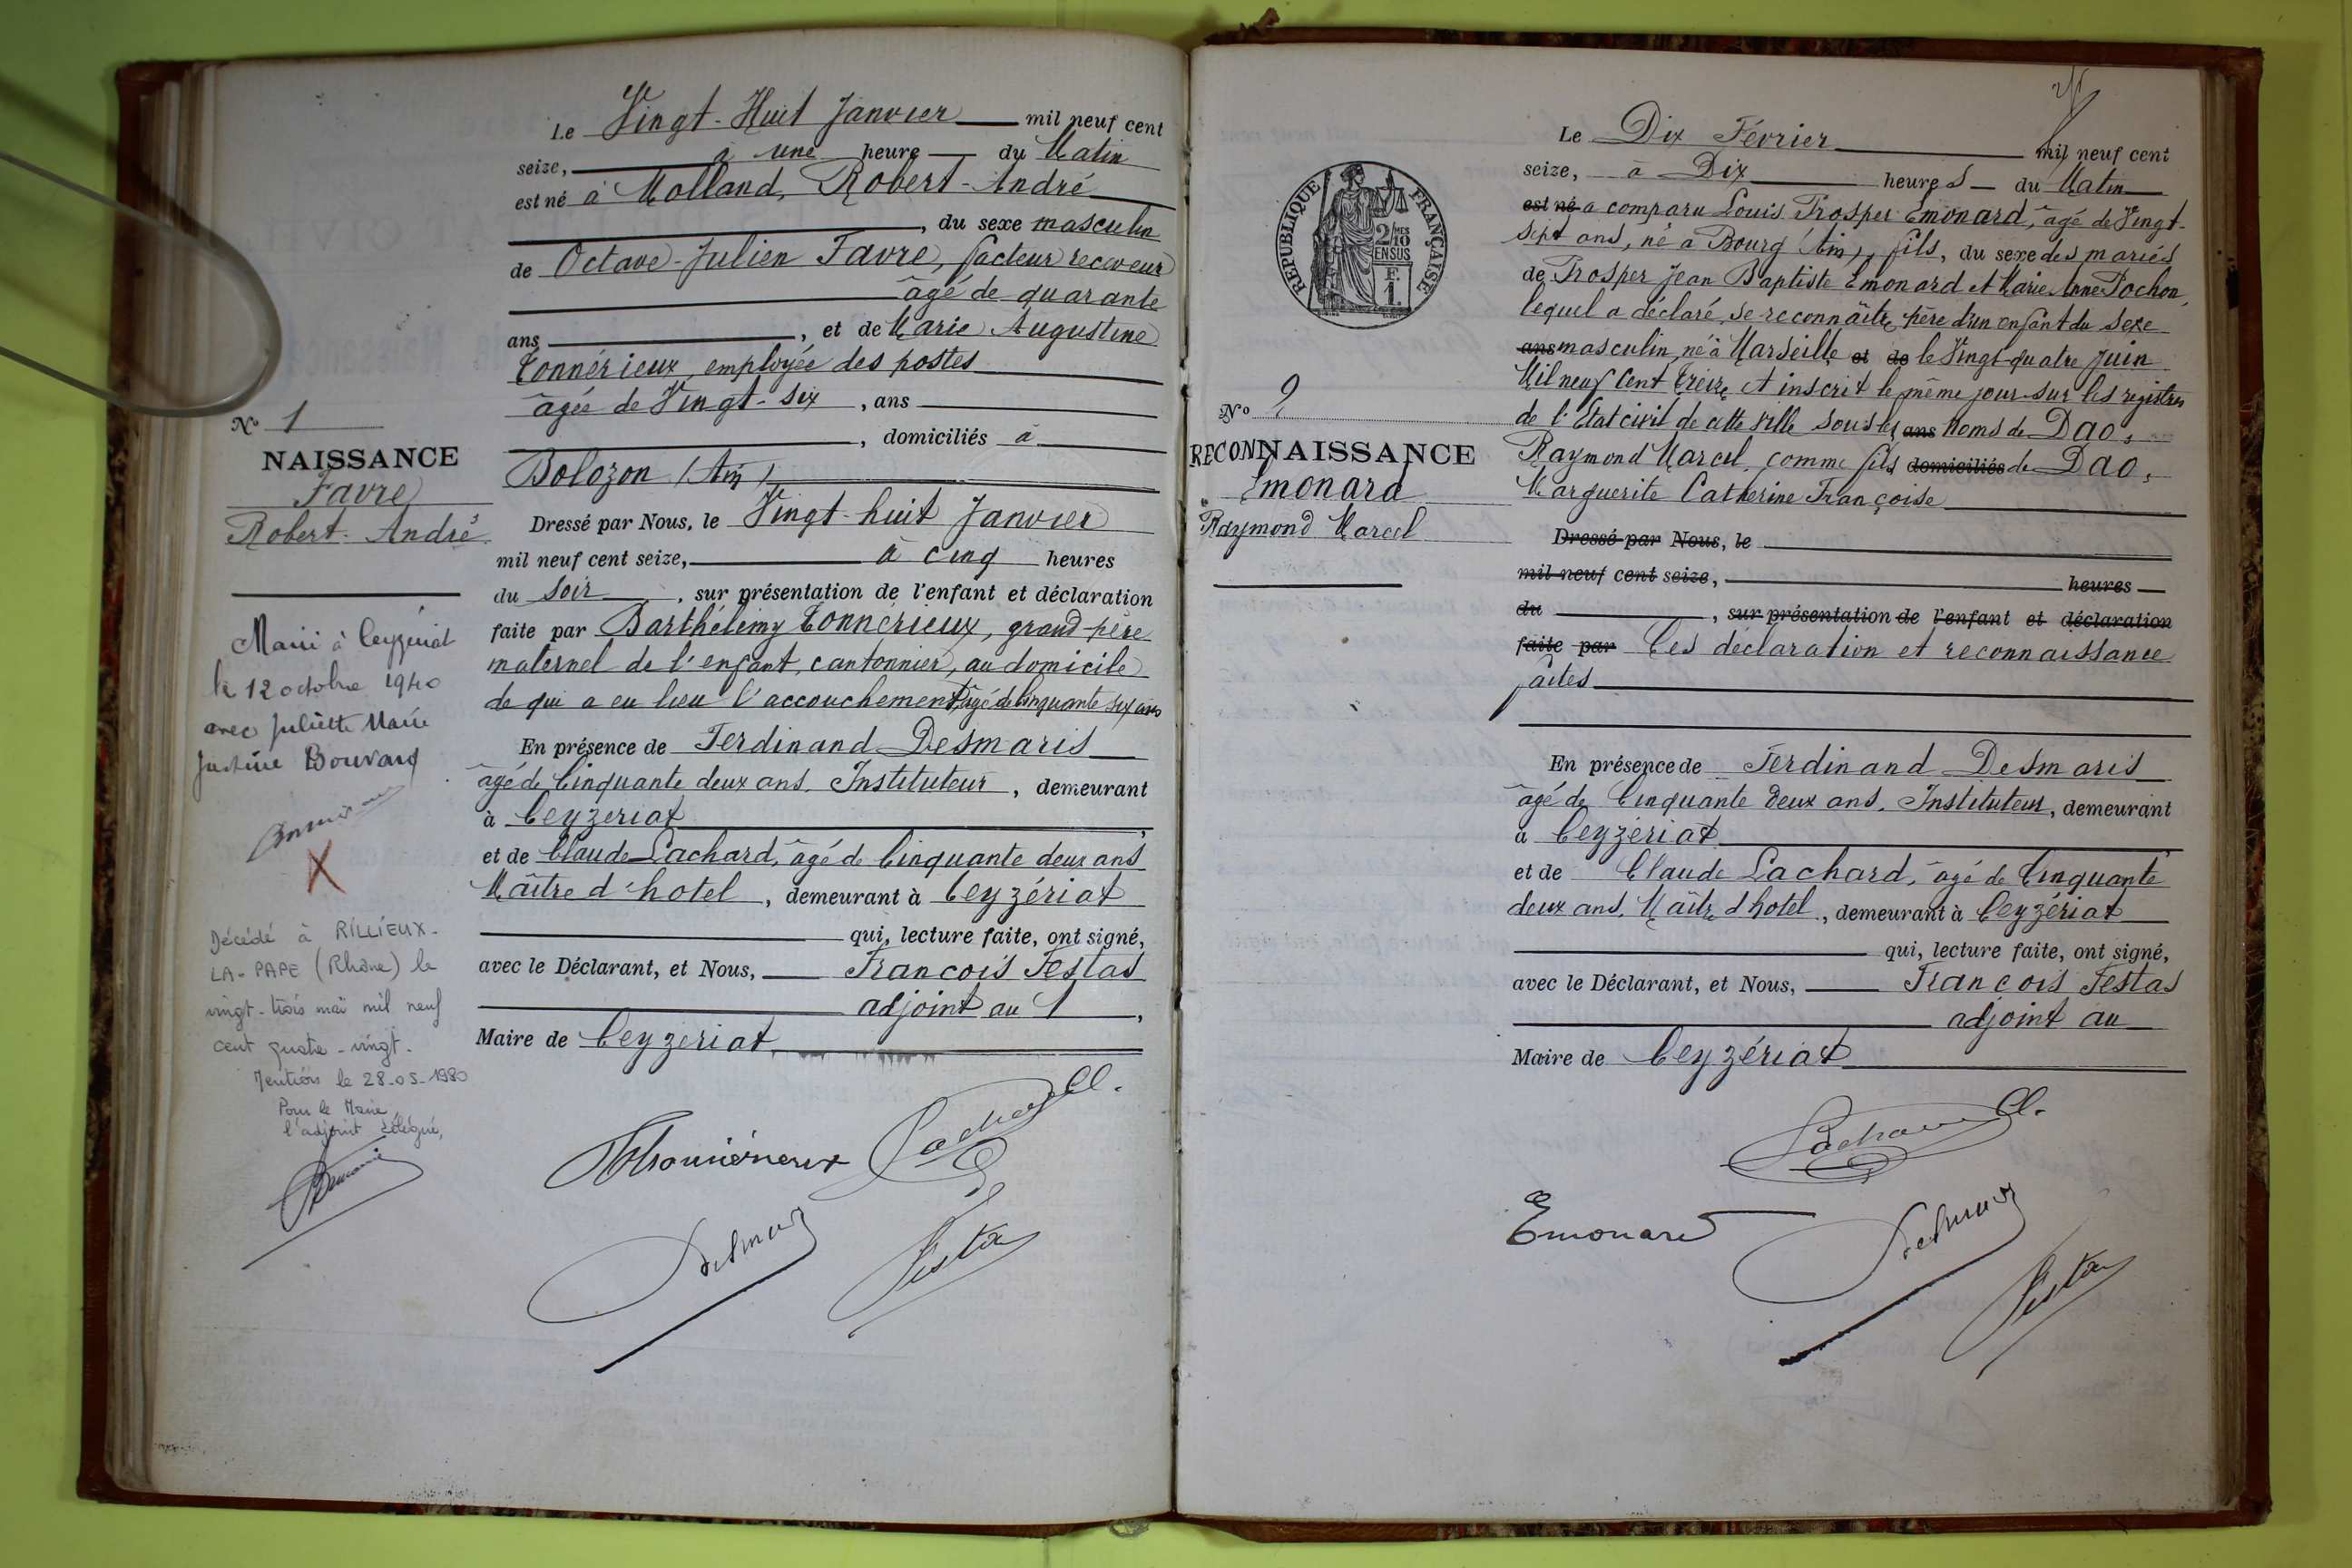 Le Vingt-Huit Janvier mil neuf cent
seize, à une heure du Matin
est né à Molland, Robert-André
, du sexe masculin
de Octave-Julien Favre, facteur receveur
âgé de quarante
ans, et de Marie Augustine
Tonnérieux, employée des postes
âgée de Vingt-six, ans
, domiciliés à
Bolozon (Ain)
Dressé par Nous, le Vingt-huit Janvier
mil neuf cent seize, à cinq heures
du soir, sur présentation de l'enfant et déclaration
faite par Barthélemy Tonnérieux, grand-père
maternel de l'enfant, cantonnier, au domicile
de qui a eu lieu l'accouchement, âgé de Cinquante six ans
En présence de Ferdinand Desmaris
âgé de Cinquante deux ans, Instituteur, demeurant
à Ceyzeriat,
et de Claude Lachard, âgé de Cinquante deux ans
Maître d'hotel, demeurant à Ceyzériat
qui, lecture faite, ont signé,
avec le Déclarant, et Nous, François Festas
adjoint au
Maire de Ceyzeriat.
Lachard Cl.
Desmaris
Festas
No 1
NAISSANCE
Favre
Robert-André
Marié à Ceyzériat
le 12 octobre 1940
avec Juliette Marie
Justine Bouvard
X
Décédé à RILLIEUX-
LA-PAPE (Rhône) le
vingt-trois mai mil neuf
cent quatre-vingt.
Mention le 28-05-1980
Pour le Maire
l'adjoint délégué,
RÉPUBLIQUE FRANÇAISE
2/10 MES
EN SUS
F.
1.
No 2
RECONNAISSANCE
Emonard
Raymond Marcel
Le Dix Février mil neuf cent
seize, à Dix heures du Matin
est né a comparu Louis Prosper Emonard, âgé de Vingt-
sept ans, né à Bourg (Ain), fils, du sexe des mariés
de Prosper Jean Baptiste Emonard et Marie Anne Pochon,
lequel a déclaré se reconnaître père d'un enfant du sexe
ans masculin, né à Marseille et de le Vingt-quatre Juin
Mil neuf Cent Treize et inscrit le même jour sur les registres
de l'Etat civil de cette ville sous les ans Noms de Dao,
Raymond Marcel, comme fils domiciliés de Dao,
Marguerite Catherine Françoise
Dressé par Nous, le
mil neuf cent seize, heures
du , sur présentation de l'enfant et déclaration
faite par Ces déclaration et reconnaissance
faites
En présence de Ferdinand Desmaris
âgé de Cinquante deux ans, Instituteur, demeurant
à Ceyzériat,
et de Claude Lachard, âgé de Cinquante
deux ans, Maître d'hotel, demeurant à Ceyzériat
qui, lecture faite, ont signé,
avec le Déclarant, et Nous, François Festas
adjoint au
Maire de Ceyzériat
Lachard Cl.
Emonard
Desmaris
Festas